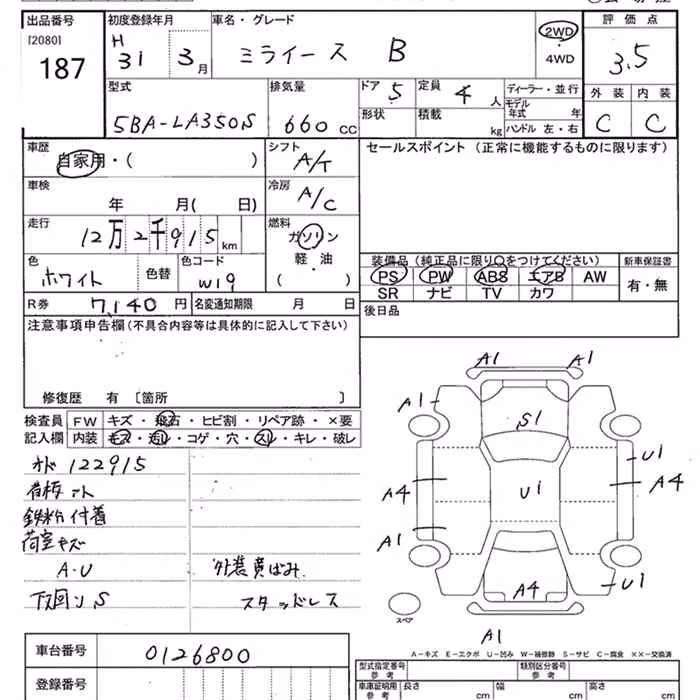 出品番号 初度登録年月 車名・グレード 評価点
[2080] H 31 3月 ミライース B 2WD
187 ・ 4WD 3.5
型式 排気量 ドア 5 定員 4人 ディーラー・並行 外装 内装
5BA-LA350S 660 CC 形状 積載 kg モデル年式 年 C C
ハンドル 左・右
車歴 シフト セールスポイント (正常に機能するものに限ります)
自家用・( ) A/T
車検 冷房
年 月( 日) A/C
走行 燃料
12万2千915km ガソリン
軽・油
( )
色 色替 色コード
ホワイト W19
装備品 (純正品に限り○をつけてください) 新車保証書
PS PW ABS エアB AW 有・無
SR ナビ TV カワ
R券 7,140円 名変通知期限 月 日
後日品
注意事項申告欄 (不具合内容等は具体的に記入して下さい)
修復歴 有 〔箇所 〕
検査員 FW キズ・飛石・ヒビ割・リペア跡・×要
記入欄 内装 キズ・汚レ・コゲ・穴・スレ・キレ・破レ
オド 122915
鉄粉付着
荷室キズ
A・U 外装黄ばみ
下回りS スタッドレス
A1 A1
A1
S1
U1
A4 U1 A4
A1
U1
A4
スペア
A1
A-キズ E-エクボ U-凹み W-補修跡 S-サビ C-腐食 ××-交換済
車台番号 0126800
登録番号
型式指定番号 参考 類別区分番号 参考
車庫証明用 参考 長さ cm 幅 cm 高さ cm